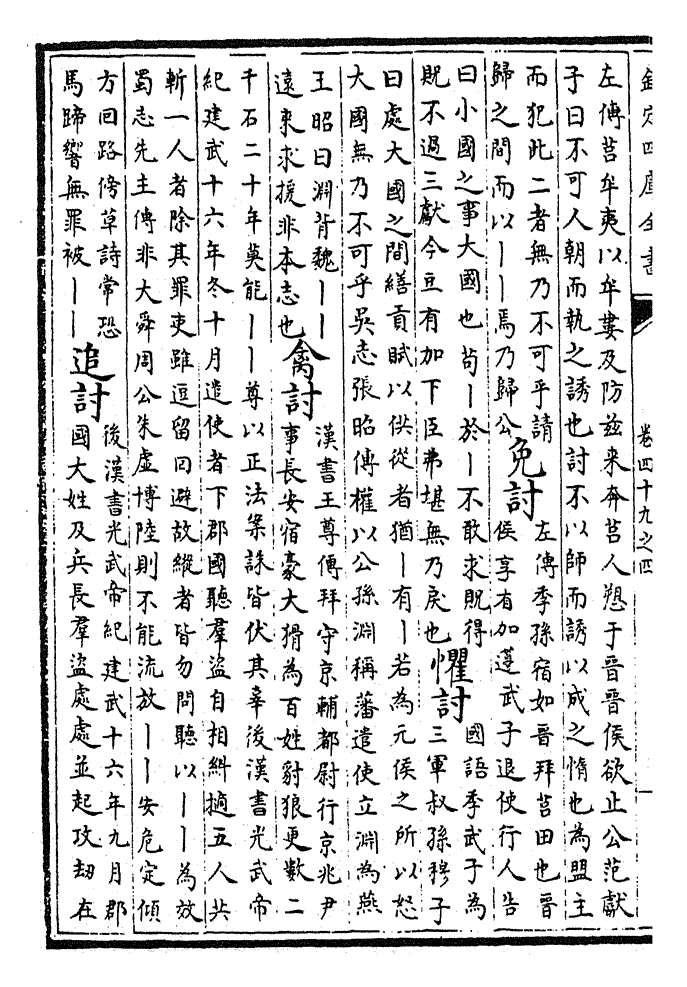 欽定四庫全書
卷四十九之四
左傳莒牟夷以牟婁及防兹来奔莒人愬于晉晉侯欲止公范獻
子曰不可人朝而執之誘也討不以師而誘以成之惰也為盟主
而犯此二者無乃不可乎請
歸之間而以丨丨焉乃歸公
免討
左傳季孫宿如晉拜莒田也晉
侯享有加籩武子退使行人告
曰小國之事大國也茍丨於丨不敢求貺得
貺不過三獻今豆有加下臣弗堪無乃戾也
懼討
國語季武子為
三軍叔孫穆子
曰處大國之間繕貢賦以供從者猶丨有丨若為元侯之所以怒
大國無乃不可乎吳志張昭傳權以公孫淵稱藩遣使立淵為燕
王昭曰淵背魏丨丨
遠来求援非本志也
禽討
漢書王尊傳拜守京輔都尉行京兆尹
事長安宿豪大猾為百姓豺狼更數二
千石二十年莫能丨丨尊以正法案誅皆伏其辜後漢書光武帝
紀建武十六年冬十月遣使者下郡國聽羣盜自相糾擿五人共
斬一人者除其罪吏雖逗留回避故縱者皆勿問聽以丨丨為放
蜀志先主傳非大舜周公朱虚博陸則不能流放丨丨安危定傾
方回路傍草詩常恐
馬蹄響無罪被丨丨
追討
後漢書光武帝紀建武十六年九月郡
國大姓及兵長羣盜處處並起攻劫在